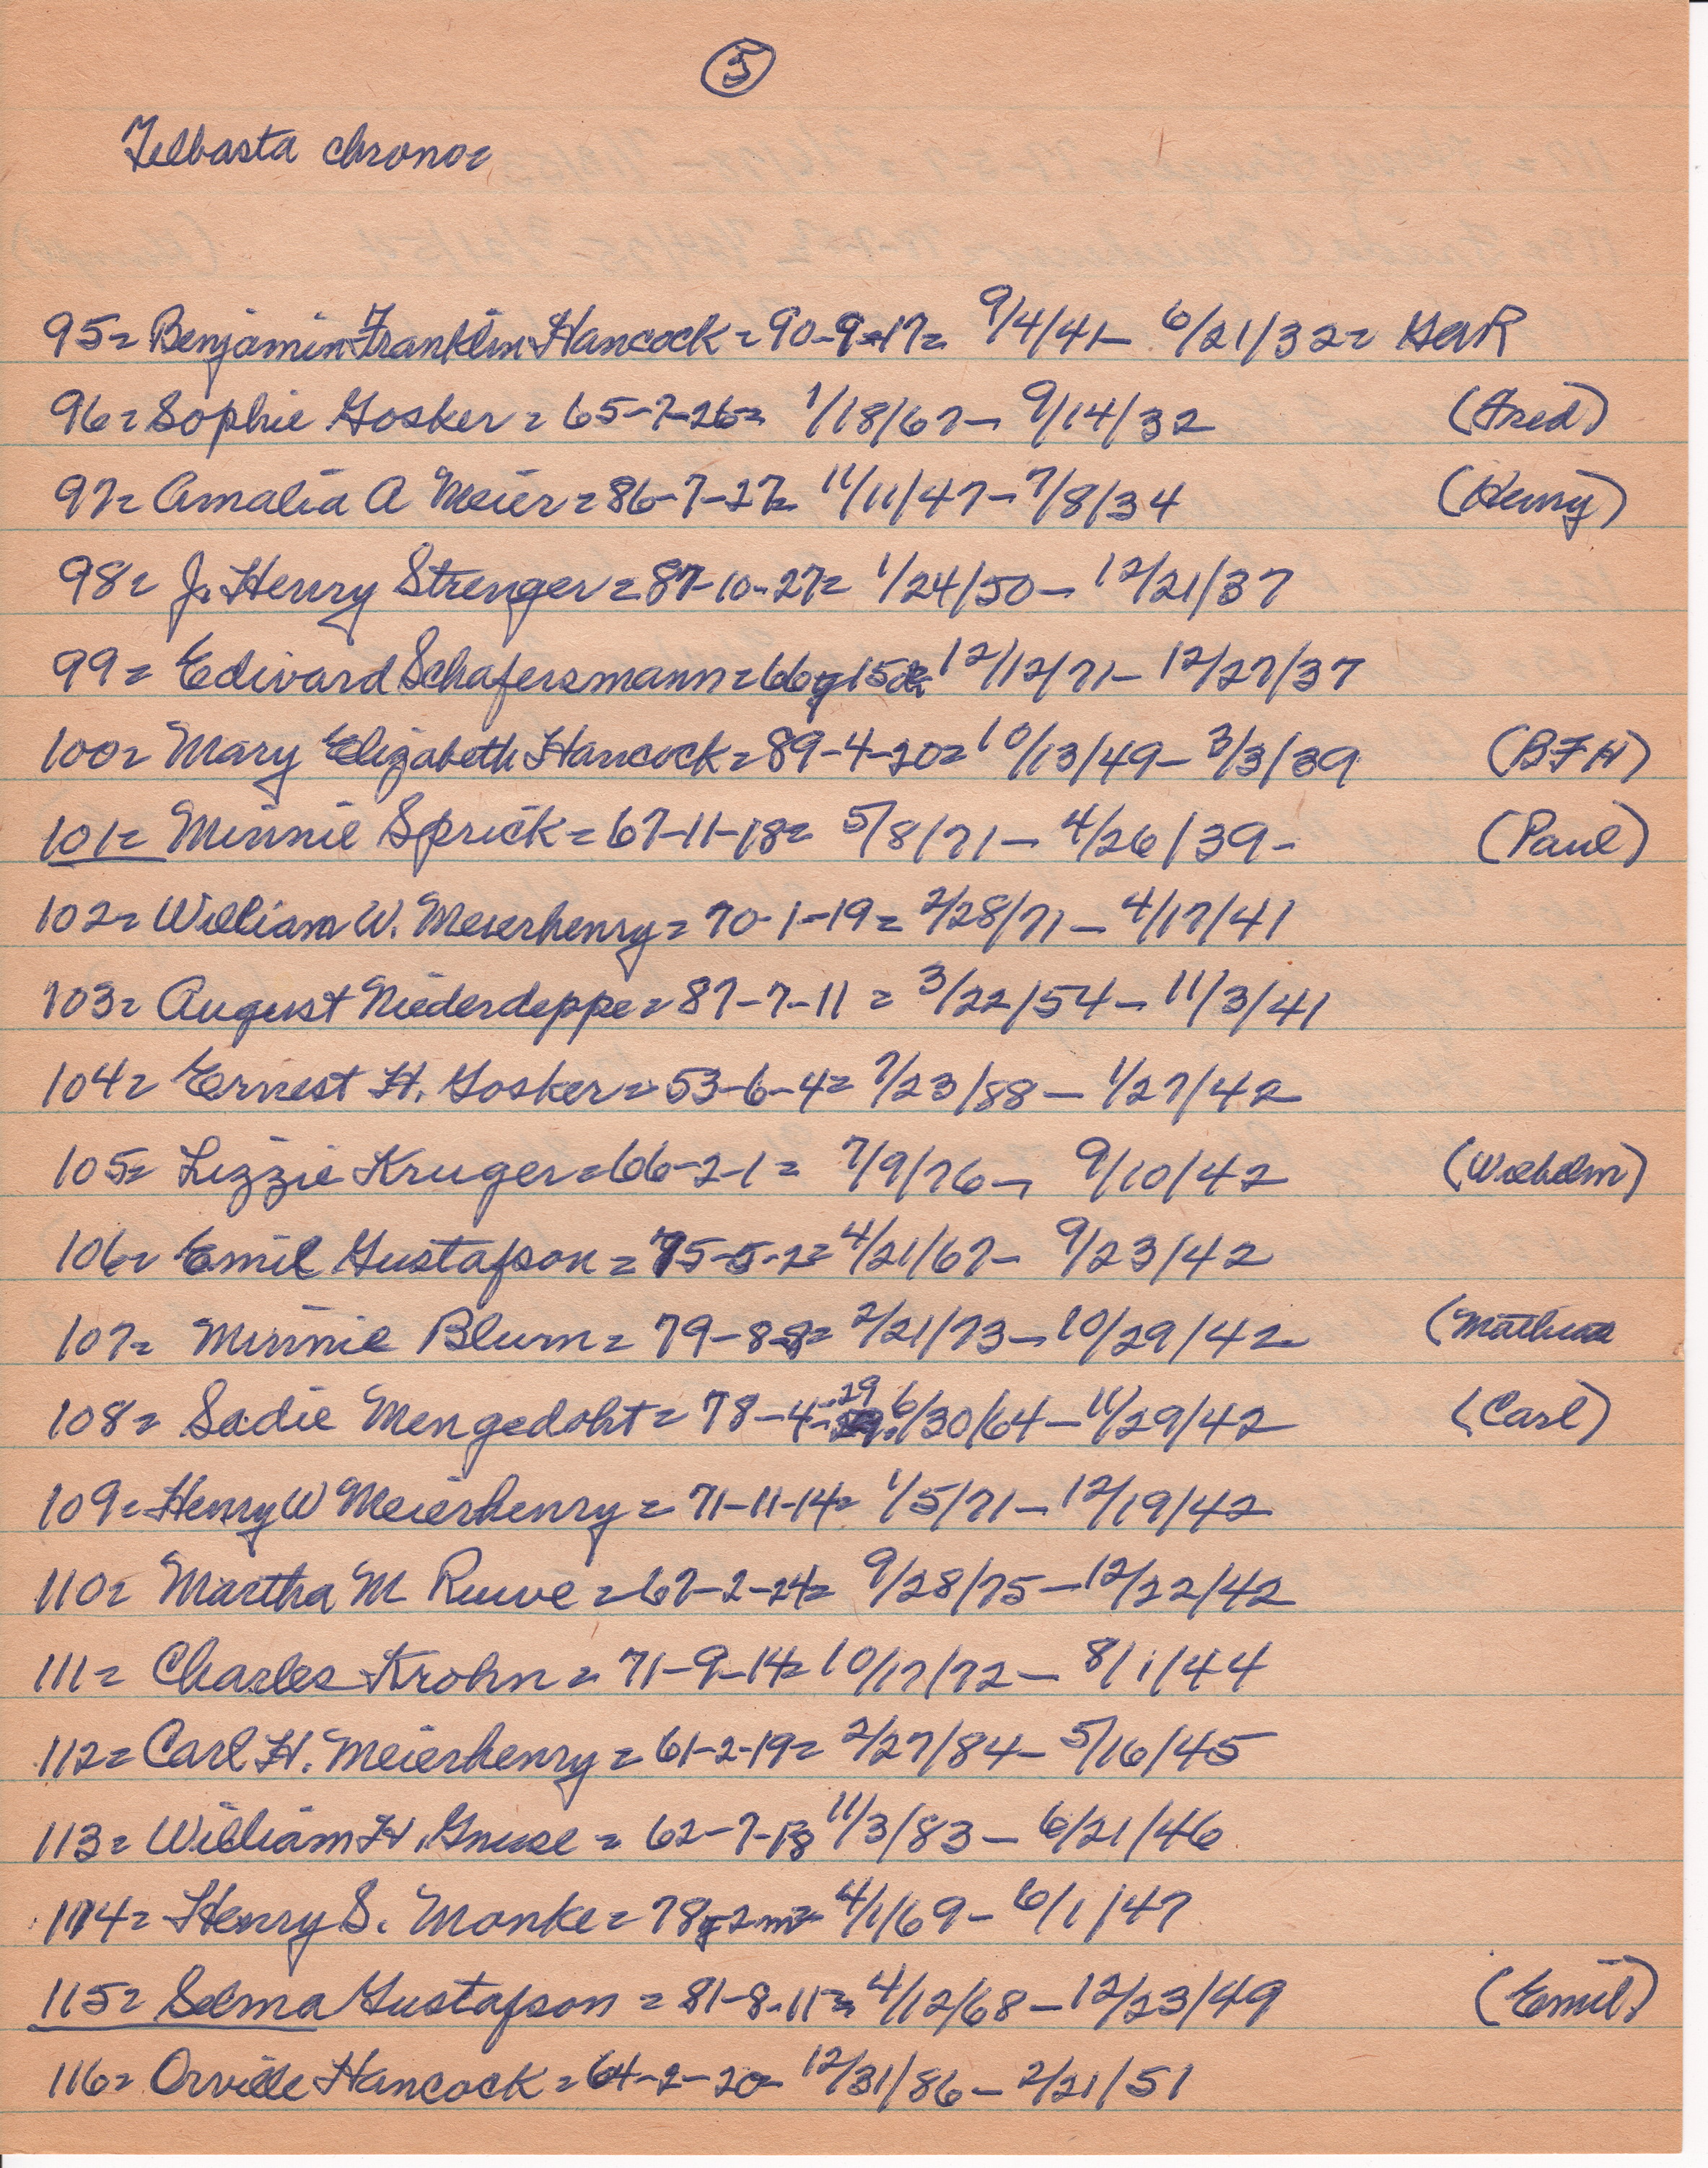 5
Telbasta chrono=
95= Benjamin Franklin Hancock = 90-9-17= 9/4/41- 6/21/32= GAR
96= Sophie Gosker = 65-7-26= 1/18/67- 9/14/32 (Fred)
97= Amalia A Meier = 86-7-27= 11/11/47-7/8/34 (Henry)
98= J. Henry Strenger = 87-10-27= 1/24/50- 12/21/37
99= Edward Schafersmann = 66y 15d= 12/12/71- 12/27/37
100= Mary Elizabeth Hancock = 89-4-20= 10/13/49- 3/3/39 (BFH)
101= Minnie Sprick = 67-11-18= 5/8/71- 4/26/39- (Paul)
102= William W. Meierhenry = 70-1-19= 2/28/71- 4/17/41
103= August Niederdeppe = 87-7-11 = 3/22/54- 11/3/41
104= Ernest H. Gosker = 53-6-4= 7/23/88- 1/27/42
105= Lizzie Kruger = 66-2-1= 7/9/76- 9/10/42 (Wilhelm)
106= Emil Gustafson = 75-5-2= 4/21/67- 9/23/42
107= Minnie Blum = 79-8-8= 2/21/73- 10/29/42 (
108= Sadie Mengedoht = 78-4-29 6/30/64- 11/29/42 (Carl)
109= Henry W Meierhenry = 71-11-14= 1/5/71- 12/19/42
110= Martha M Ruwe = 67-2-24= 9/28/75- 12/22/42
111= Charles Krohn = 71-9-14= 10/17/72- 8/1/44
112= Carl H. Meierhenry = 61-2-19= 2/27/84- 5/16/45
113= William H. Gnuse = 62-7-18 11/3/83- 6/21/46
114= Henry S. Monke = 78y 2m= 4/1/69- 6/1/47
115= Selma Gustafson = 81-8-11= 4/12/68- 12/23/49 (Emil)
116= Orville Hancock = 64-2-20- 12/31/86- 2/21/51